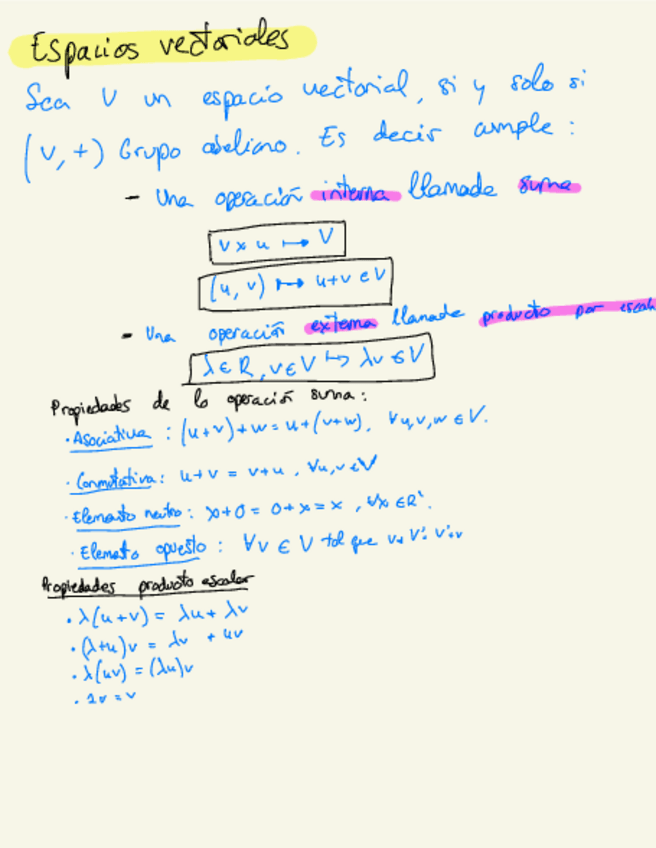 Espacios vectoriales
Sea V un espacio vectorial, si y solo si
(V,+) Grupo abeliano. Es decir cumple:
- Una operación interna llamada suma
V x u ↦ V
(u, v) ↦ u+v ∈ V
- Una operación externa llamada producto por escal
λ∈R, v∈V ↦ λv ∈ V
Propiedades de la operación suma:
· Asociativa : (u+v)+w = u+(v+w), ∀u,v,w ∈ V.
· Conmutativa: u+v = v+u, ∀u,v ∈ V
· Elemento neutro: x+0 = 0+x = x, ∀x ∈ R
· Elemento opuesto : ∀v ∈ V tal que
Propiedades producto escalar
· λ(u+v) = λu + λv
· (λ+u)v = λv + uv
· λ(uv) = (λu)v
· 1v = v